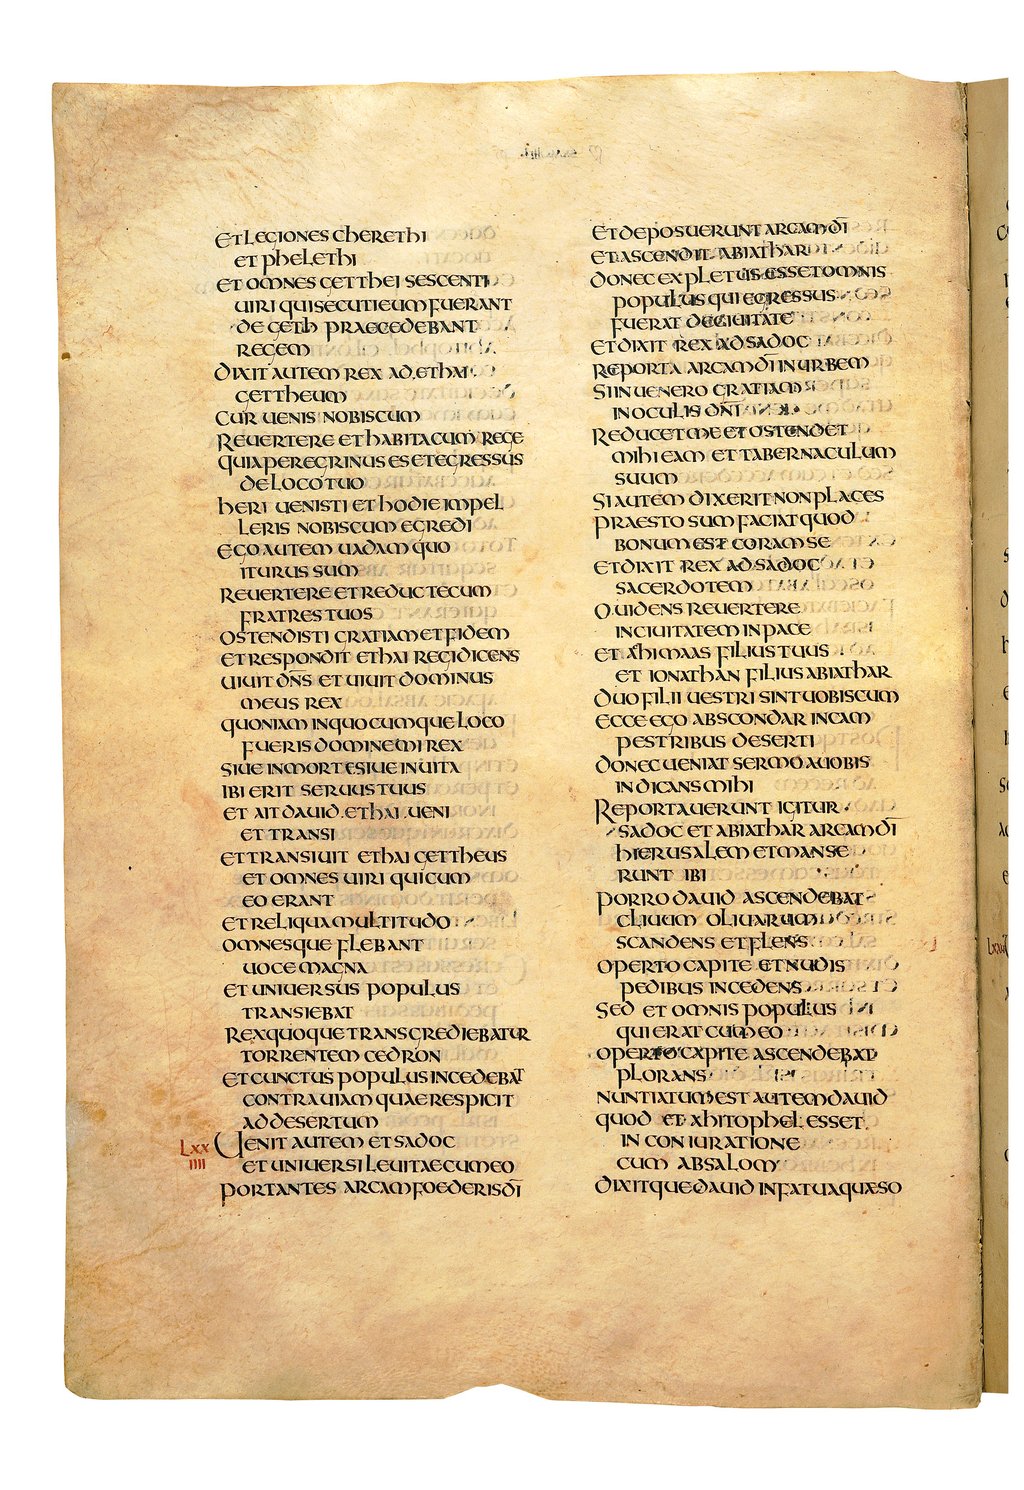 ET LEGIONES CHERETHI
ET PHELETHI
ET OMNES GETTHEI SESCENTI
UIRI QUI SECUTI EUM FUERANT
DE GETH PRAECEDEBANT
REGEM
DIXIT AUTEM REX AD ETHAI
GETTHEUM
CUR UENIS NOBISCUM
REUERTERE ET HABITA CUM REGE
QUIA PEREGRINUS ES ET EGRESSUS
DE LOCO TUO
HERI UENISTI ET HODIE IMPEL
LERIS NOBISCUM EGREDI
EGO AUTEM UADAM QUO
ITURUS SUM
REUERTERE ET REDUC TECUM
FRATRES TUOS
OSTENDISTI GRATIAM ET FIDEM
ET RESPONDIT ETHAI REGI DICENS
UIUIT DN̄S ET UIUIT DOMINUS
MEUS REX
QUONIAM IN QUOCUMQUE LOCO
FUERIS DOMINE MI REX
SIUE IN MORTE SIUE IN UITA
IBI ERIT SERUUS TUUS
ET AIT DAUID ETHAI UENI
ET TRANSI
ET TRANSIUIT ETHAI GETTHEUS
ET OMNES UIRI QUI CUM
EO ERANT
ET RELIQUA MULTITUDO
OMNESQUE FLEBANT
UOCE MAGNA
ET UNIUERSUS POPULUS
TRANSIEBAT
REX QUOQUE TRANSGREDIEBATUR
TORRENTEM CEDRON
ET CUNCTUS POPULUS INCEDEBAT
CONTRA UIAM QUAE RESPICIT
AD DESERTUM
LXX UENIT AUTEM ET SADOC
IIII ET UNIUERSI LEUITAE CUM EO
PORTANTES ARCAM FOEDERIS DĪ
ET DEPOSUERUNT ARCAM DĪ
ET ASCENDIT ABIATHAR
DONEC EXPLETUS ESSET OMNIS
POPULUS QUI EGRESSUS
FUERAT DE CIUITATE
ET DIXIT REX AD SADOC
REPORTA ARCAM DĪ IN URBEM
SI INUENERO GRATIAM
IN OCULIS DN̄I
REDUCET ME ET OSTENDET
MIHI EAM ET TABERNACULUM
SUUM
SI AUTEM DIXERIT NON PLACES
PRAESTO SUM FACIAT QUOD
BONUM EST CORAM SE
ET DIXIT REX AD SADOC
SACERDOTEM
O UIDENS REUERTERE
IN CIUITATEM IN PACE
ET AHIMAAS FILIUS TUUS
ET IONATHAN FILIUS ABIATHAR
DUO FILII UESTRI SINT UOBISCUM
ECCE EGO ABSCONDAR IN CAM
PESTRIBUS DESERTI
DONEC UENIAT SERMO A UOBIS
INDICANS MIHI
REPORTAUERUNT IGITUR
SADOC ET ABIATHAR ARCAM DĪ
HIERUSALEM ET MANSE
RUNT IBI
PORRO DAUID ASCENDEBAT
CLIUUM OLIUARUM
SCANDENS ET FLENS
OPERTO CAPITE ET NUDIS
PEDIBUS INCEDENS
SED ET OMNIS POPULUS
QUI ERAT CUM EO
OPERTO CAPITE ASCENDEBAT
PLORANS
NUNTIATUM EST AUTEM DAUID
QUOD ET AHITOPHEL ESSET
IN CONIURATIONE
CUM ABSALOM
DIXITQUE DAUID INFATUA QUAESO